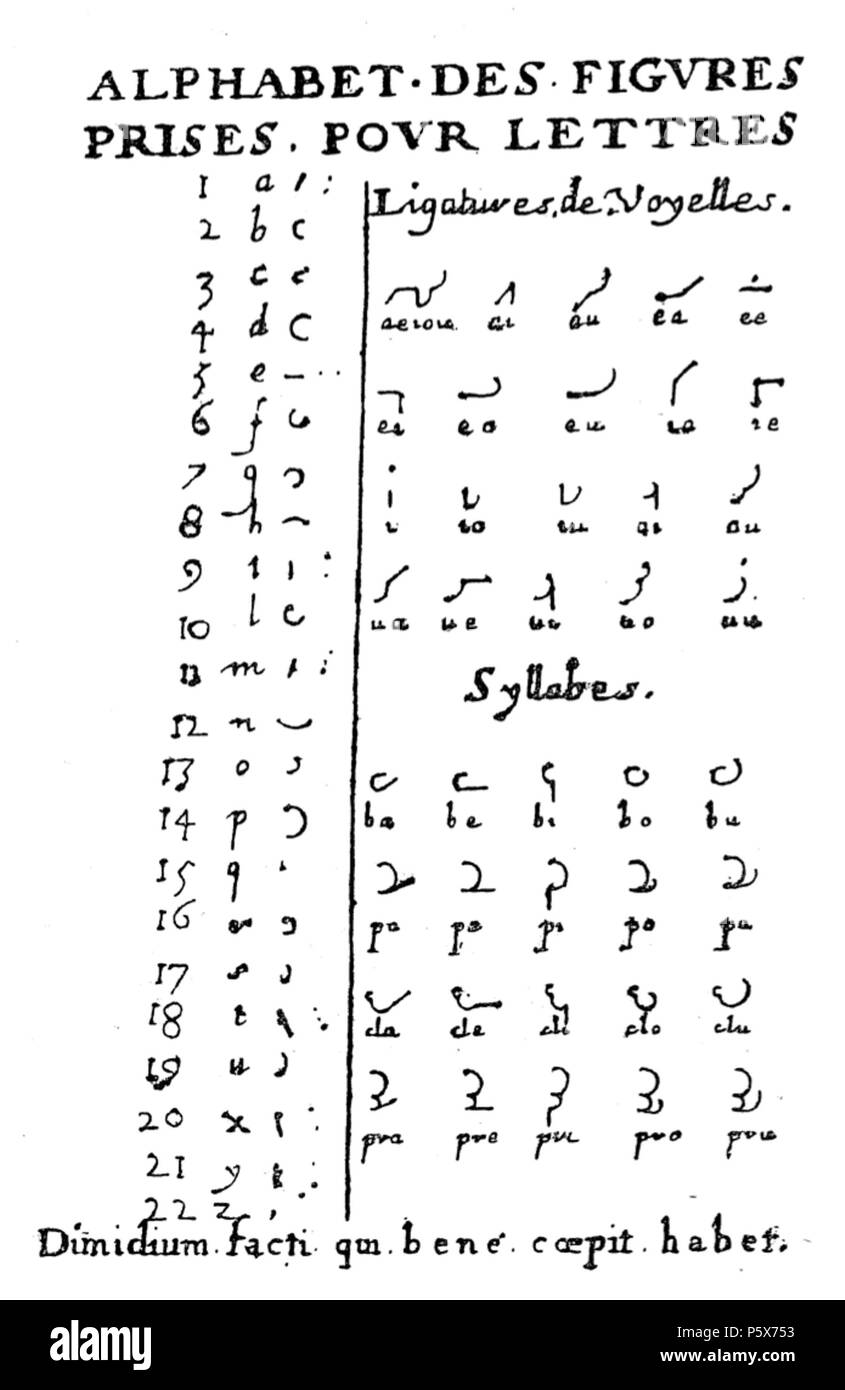 ALPHABET·DES·FIGVRES
PRISES. POVR LETTRES
1 a
2 b
3 c
4 d
5 e
6 f
7 g
8 h
9 i
10 l
11 m
12 n
13 o
14 p
15 q
16 r
17 s
18 t
19 u
20 x
21 y
22 z
Ligatures.de.Voyelles.
aeiou ai au ea ee
ei eo eu ia ie
i io iu oi ou
ua ue ui uo uu
Syllabes.
ba be bi bo bu
pa pe pi po pu
cla cle cli clo clu
pra pre pri pro pru
Dimidium. facti. qui. bene. cœpit. habet.
alamy
Image ID: P5X753
www.alamy.com